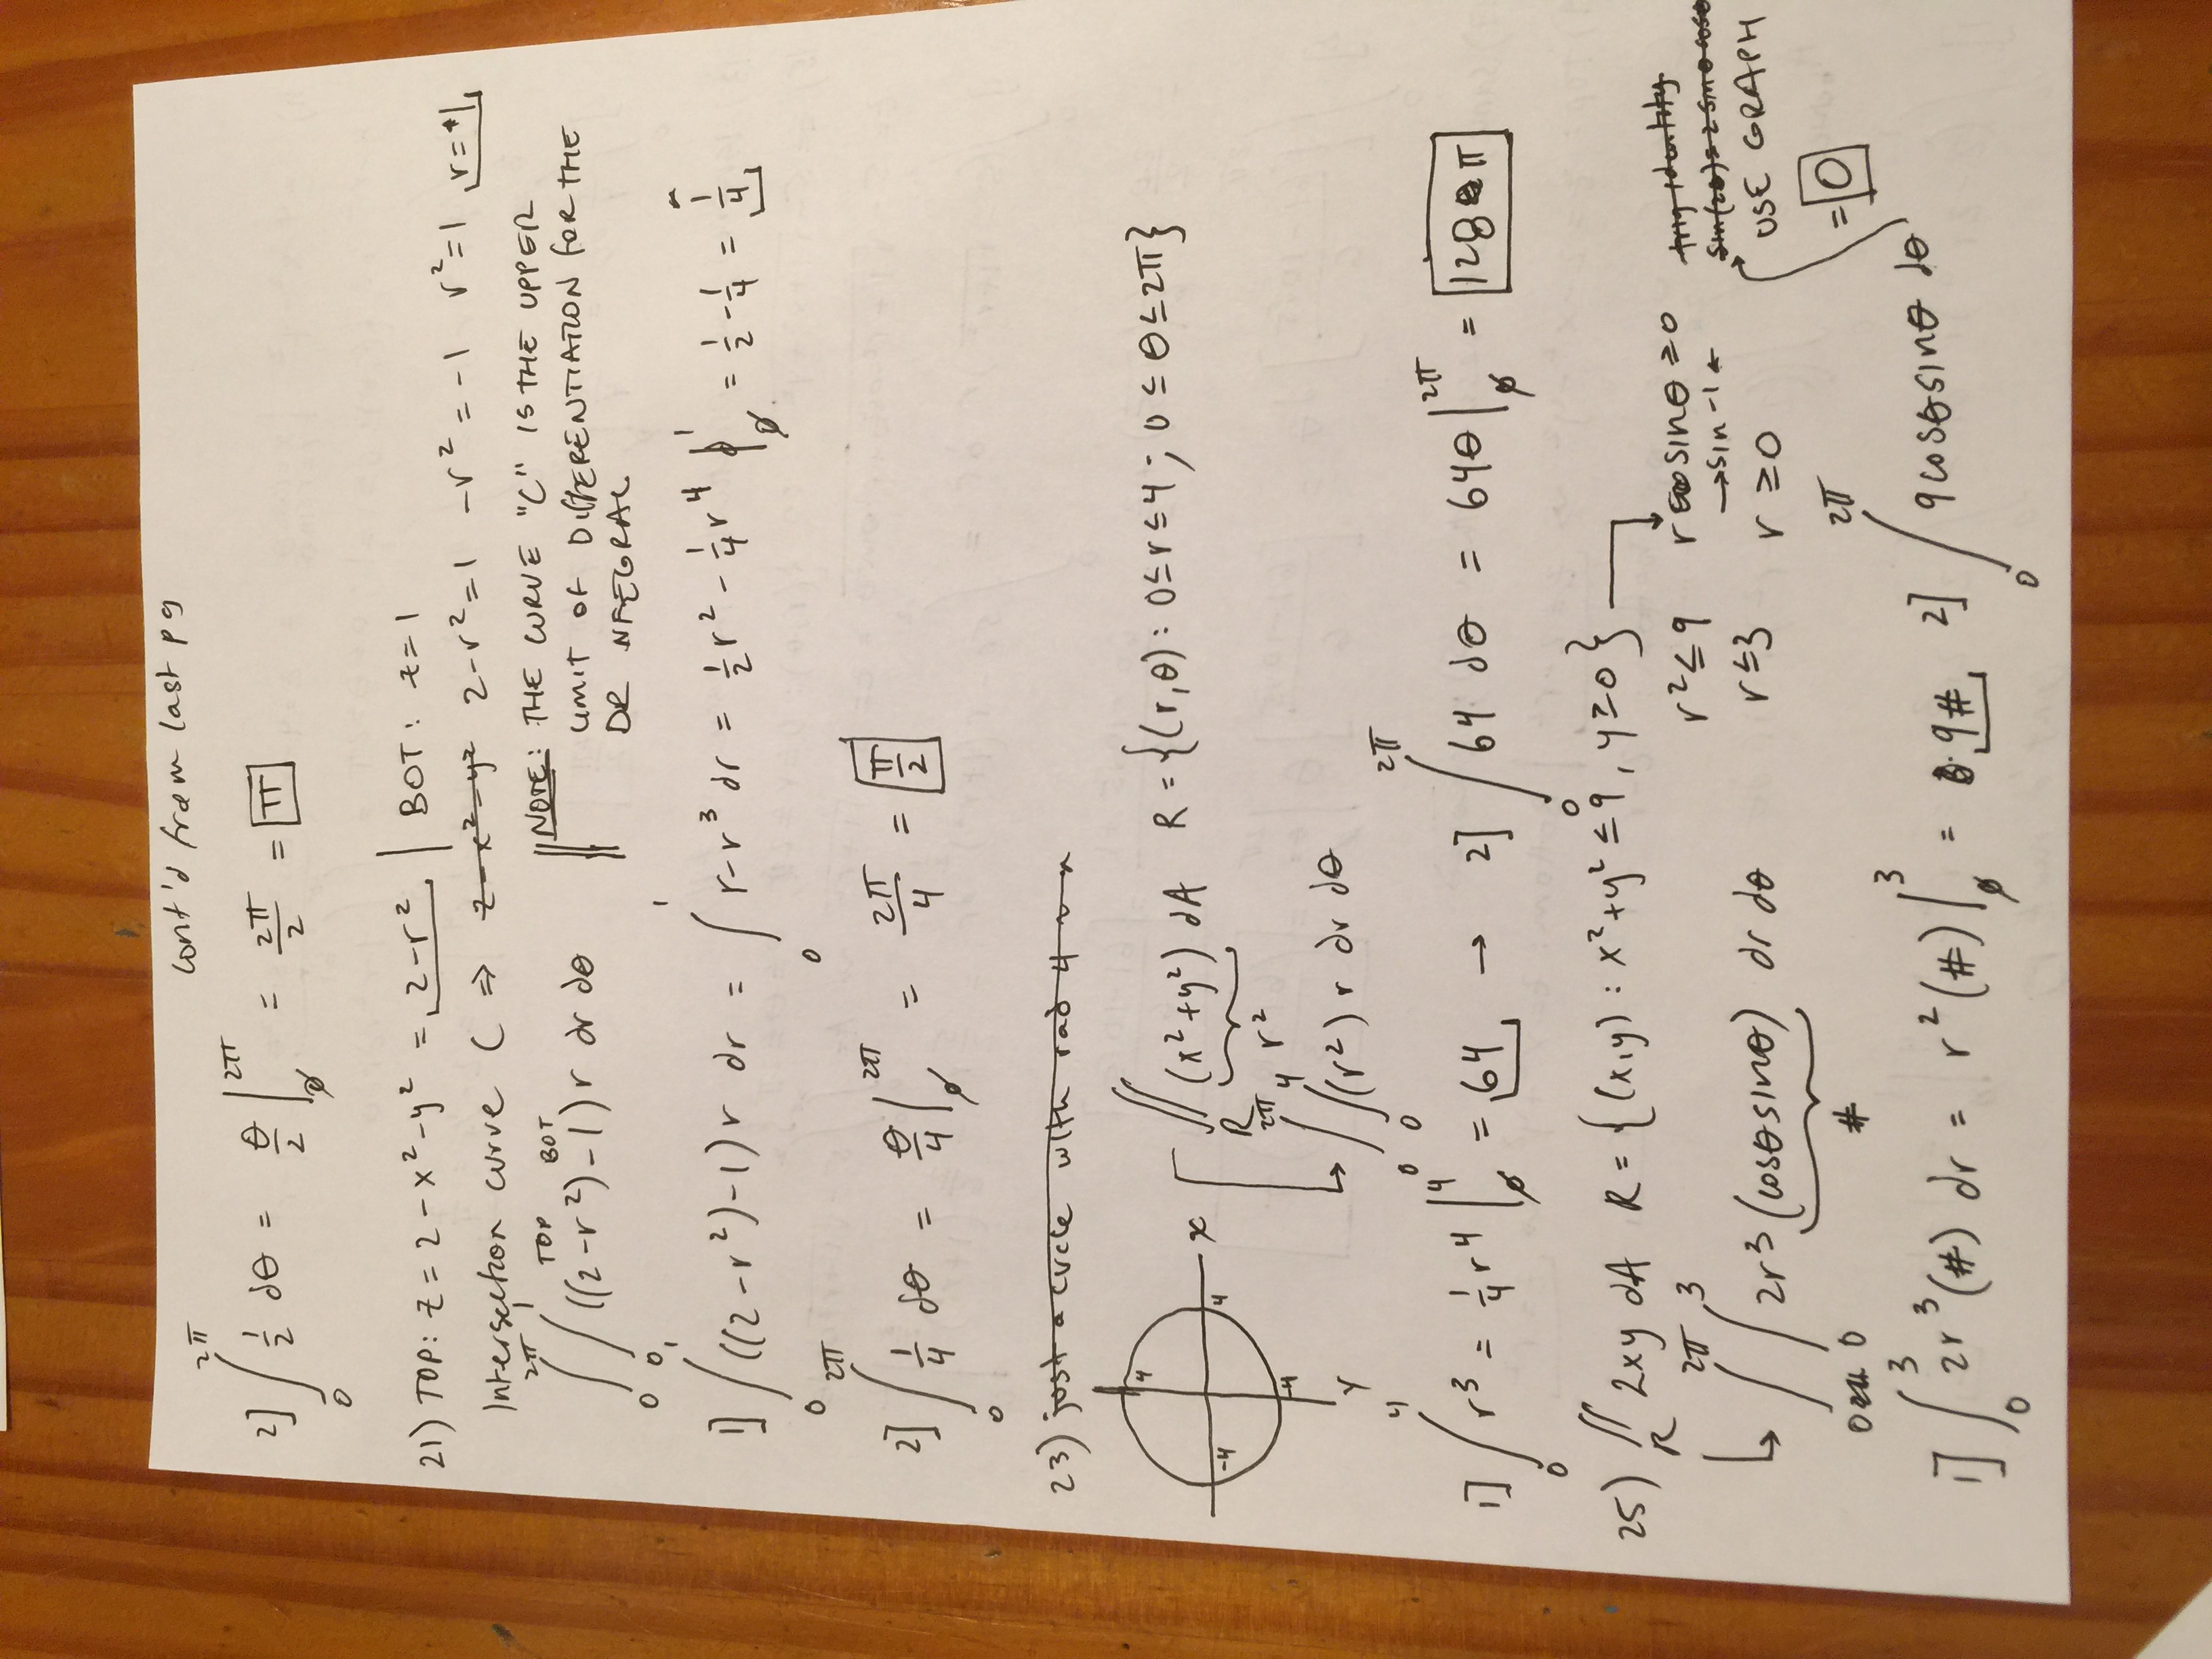 cont'd from last pg
2] ∫₀^2π 1/2 dθ = θ/2 |₀^2π = 2π/2 = π
21) TOP: z = 2 - x² - y² = 2 - r² | BOT: z = 1
Intersection curve C ⇒ 2 - x² - y² 2 - r² = 1 -r² = -1 r² = 1 r = 1
∫₀^2π ∫₀^1 ((2 - r²) - 1) r dr dθ TOP BOT
NOTE: THE CURVE "C" IS THE UPPER
LIMIT OF DIFFERENTIATION FOR THE
DR NTEGRAL
1] ∫₀^1 ((2 - r²) - 1) r dr = ∫₀^1 r - r³ dr = 1/2 r² - 1/4 r⁴ |₀^1 = 1/2 - 1/4 = 1/4
2] ∫₀^2π 1/4 dθ = θ/4 |₀^2π = 2π/4 = π/2
23) just a circle with rad 4
4
-4 4 x
-4
Y
∬_R (x² + y²) dA R = {(r, θ) : 0 ≤ r ≤ 4 ; 0 ≤ θ ≤ 2π}
r²
→ ∫₀^2π ∫₀^4 (r²) r dr dθ
1] ∫₀^4 r³ = 1/4 r⁴ |₀^4 = 64 → 2] ∫₀^2π 64 dθ = 64θ |₀^2π = 128π
25) ∬_R 2xy dA R = {(x, y) : x² + y² ≤ 9, y ≥ 0}
r² ≤ 9 r sinθ ≥ 0 trig identity
→ sin -1 ← sin(2θ) = 2 sinθ cosθ
r ≤ 3 r ≥ 0 USE GRAPH
= 0
∫₀^2π ∫₀^3 2r³ (cosθ sinθ) dr dθ
#
1] ∫₀^3 2r³ (#) dr = r² (#) |₀^3 = 9# 2] ∫₀^2π 9 cosθ sinθ dθ